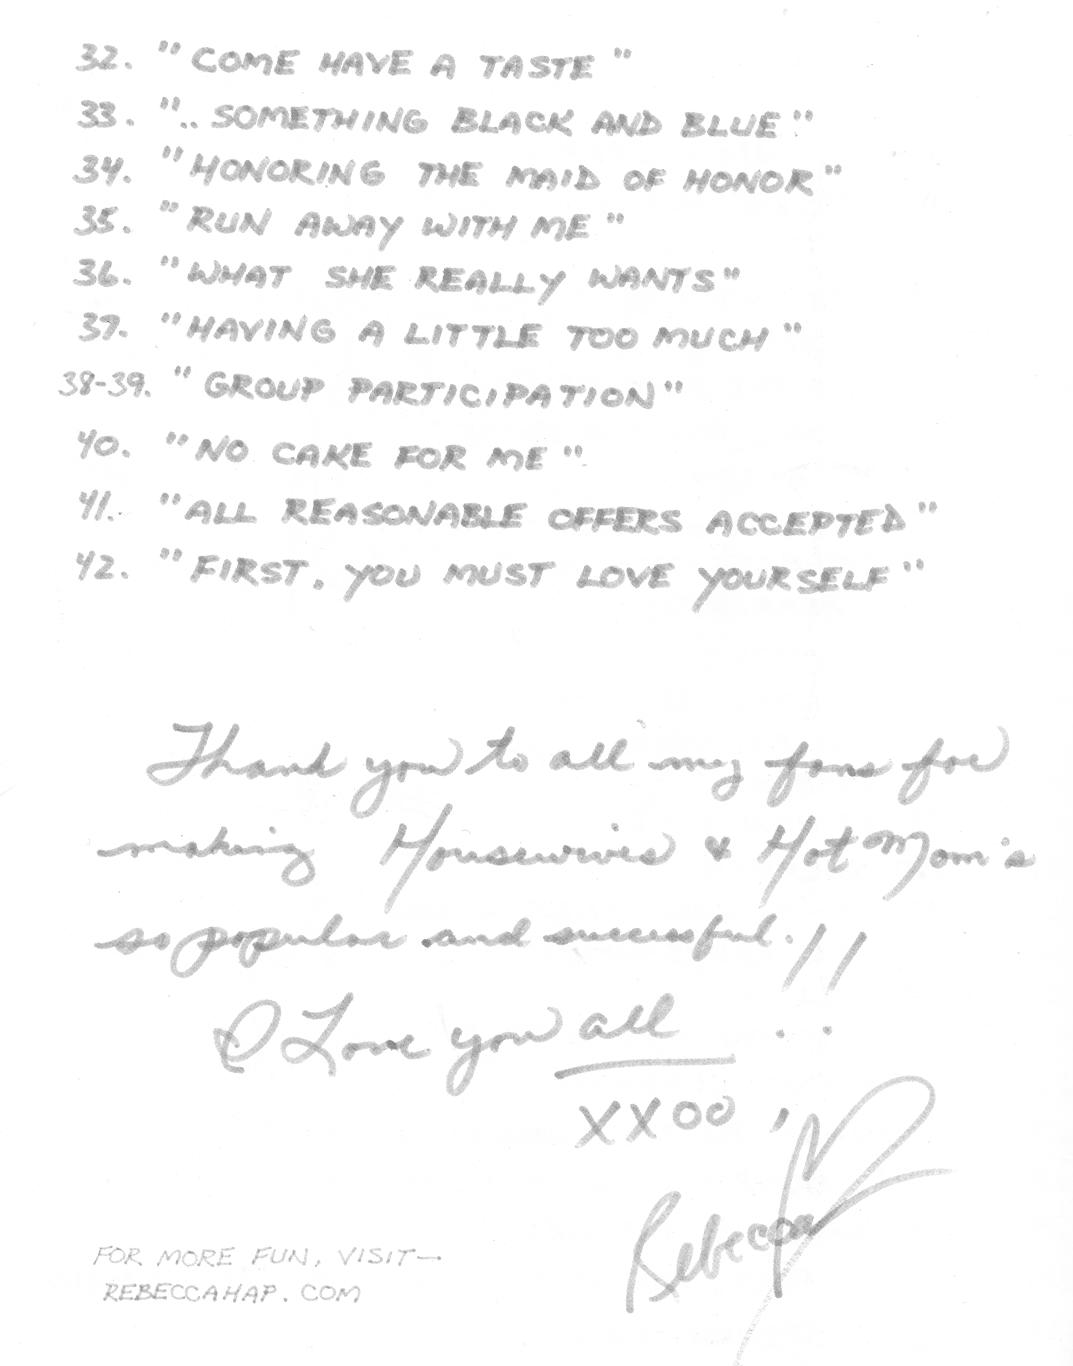 32. "COME HAVE A TASTE"
33. ".. SOMETHING BLACK AND BLUE"
34. "HONORING THE MAID OF HONOR"
35. "RUN AWAY WITH ME"
36. "WHAT SHE REALLY WANTS"
37. "HAVING A LITTLE TOO MUCH"
38-39. "GROUP PARTICIPATION"
40. "NO CAKE FOR ME"
41. "ALL REASONABLE OFFERS ACCEPTED"
42. "FIRST, YOU MUST LOVE YOURSELF"
Thank you to all my fans for
making Housewives & Hot Mom's
so popular and successful.!!
I Love you all
XXOO,
Rebecca
FOR MORE FUN, VISIT—
REBECCAHAP.COM